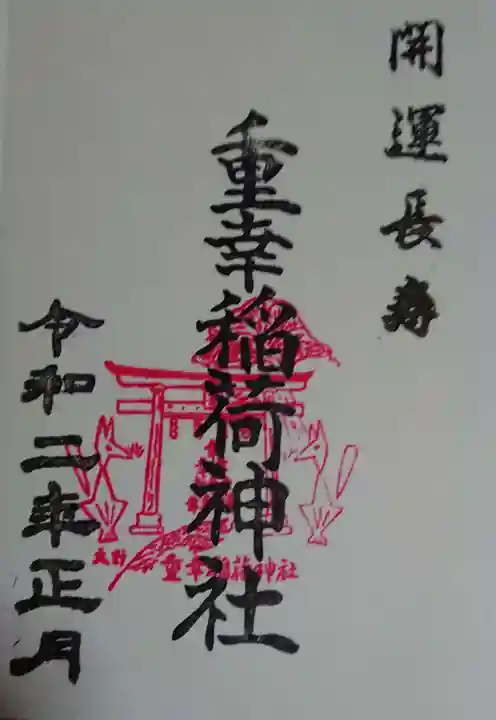 開運長寿
重幸稲荷神社
令和二年正月
重幸稲荷神社